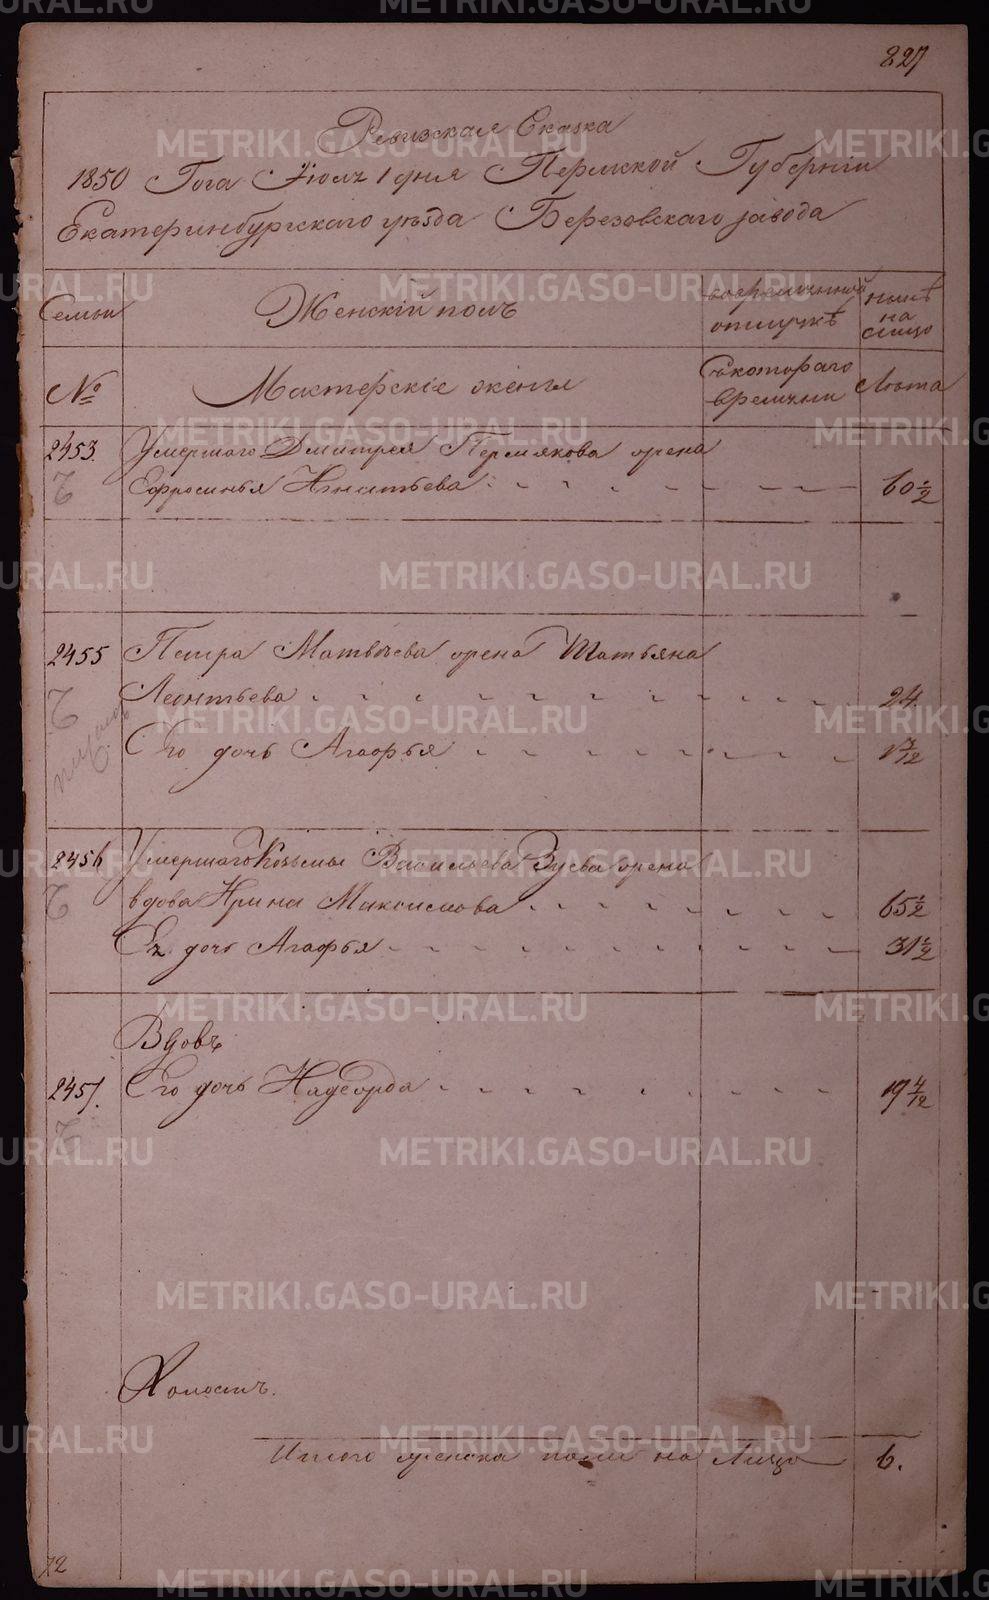 827
Ревизская Сказка
1850 Года Іюля 1 дня Пермской Губерніи
Екатеринбургскаго уѣзда Березовскаго завода
Семьи
Женскій полъ
во временной отлучкѣ
нынѣ на лицо
№
Мастерскіе жены
Съ котораго времени
Лѣта
2453. Умершаго Дмитрея Пермякова жена
Ефросинья Игнатьева 60 1/2
2455 Петра Матвѣева жена Татьяна
Леонтьева 24.
Его дочь Агафья 1 7/12
2456 Умершаго Козьмы Васильева Зуева жена
вдова Ирина Максимова 65 1/2
Ея дочь Агафья 31 1/2
Вдовъ
2457. Его дочь Надеорда 19 4/12
Холостъ.
Итого женска пола на Лицо 6.
72
METRIKI.GASO-URAL.RU